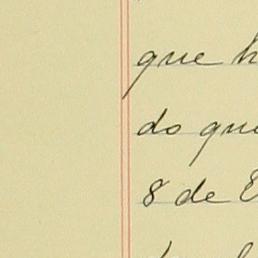 que
do que
8 de